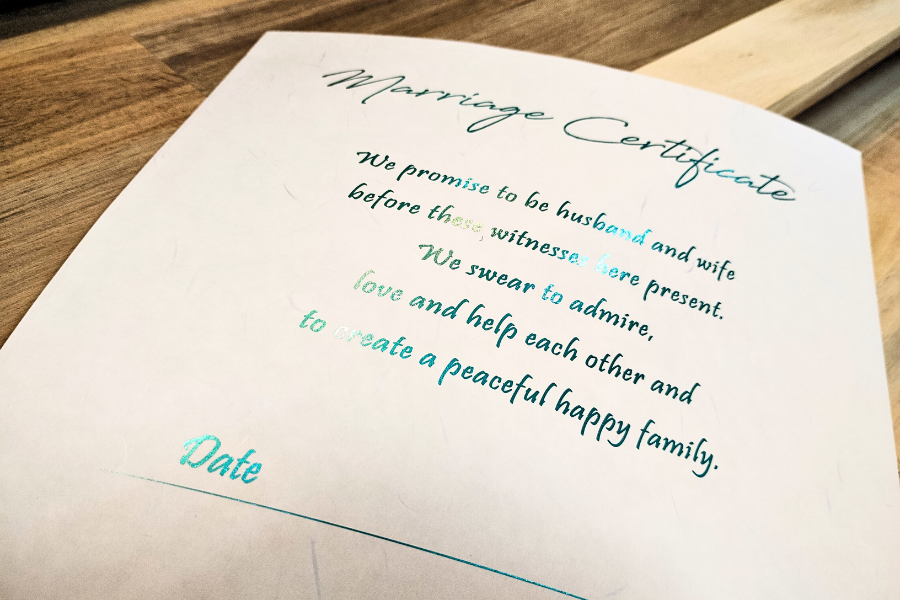 Marriage Certificate
We promise to be husband and wife
before these witnesses here present.
We swear to admire,
love and help each other and
to create a peaceful happy family.
Date